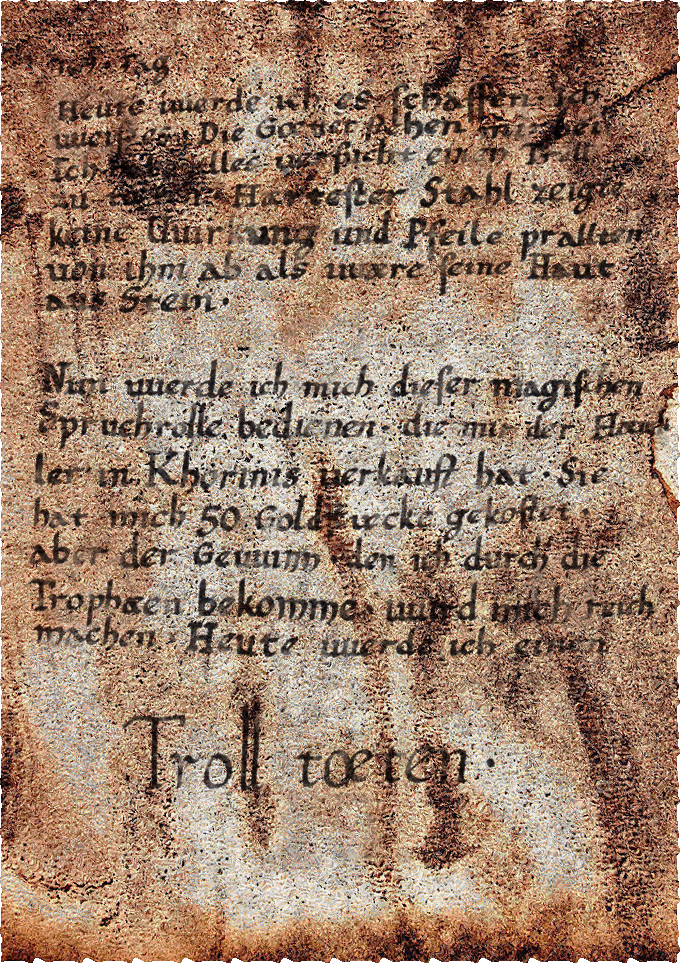 Tag
Heute werde ich es schaffen. ich
weis es. Die Goetter stehen mir bei
Ich alles versucht einen Troll
zu Haertester Stahl zeigte
keine Wirkung und Pfeile prallten
von ihm ab als wære seine Haut
aus Stein.
Nun werde ich mich dieser magischen
Spruchrolle bedienen. die mir der Hænd
ler in Khorinis verkauft hat. Sie
hat mich 50 Goldstuecke gekostet.
aber der Gewinn den ich durch die
Trophaeen bekomme, wird mich reich
machen. Heute werde ich einen
Troll tœten.